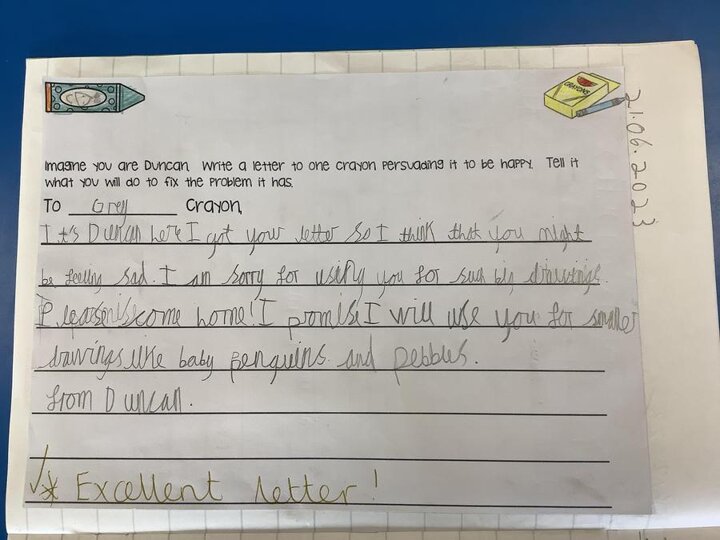 CRAYONS
21.06.2023
Imagine you are Duncan. Write a letter to one crayon persuading it to be happy. Tell it
what you will do to fix the problem it has.
To Grey Crayon,
It's Duncan here I got your letter so I think that you might
be feeling sad. I am sorry for using you for such big drawings.
come home! I promise I will use you for smaller
drawings like baby penguins and pebbles.
from Duncan.
Excellent letter!